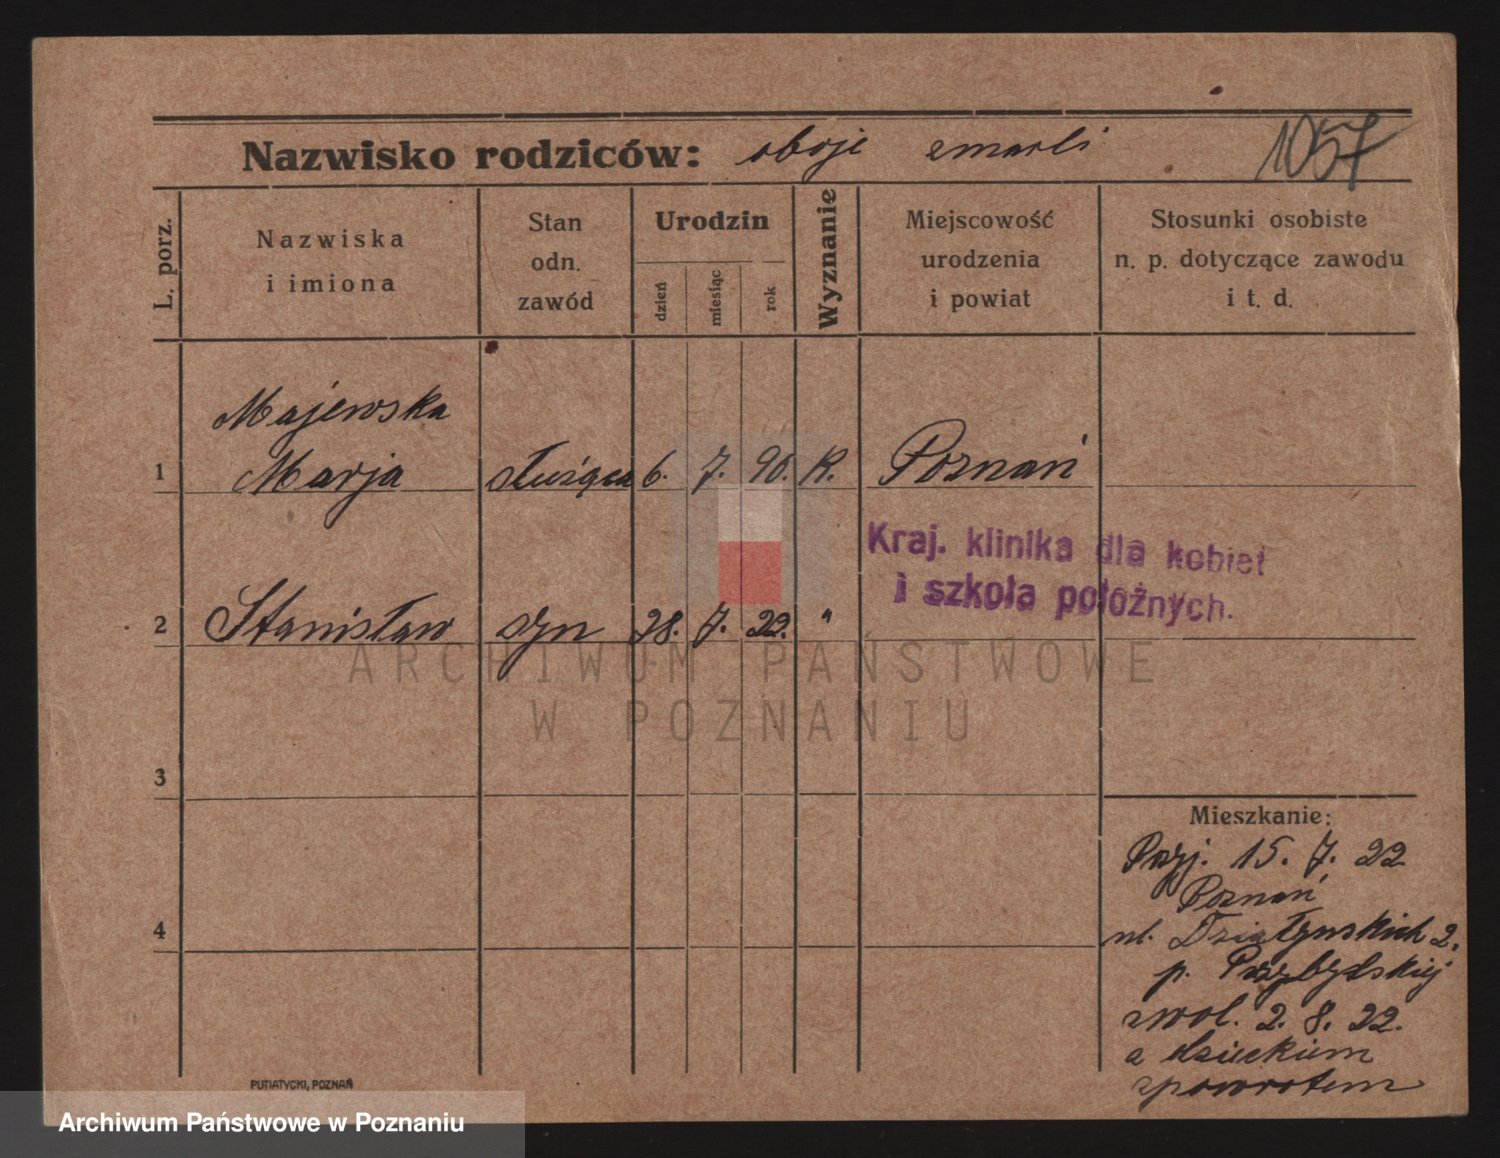 Nazwisko rodziców: oboje zmarli 1057
L. porz.
Nazwiska
i imiona
Stan
odn.
zawód
Urodzin
dzień
miesiąc
rok
Wyznanie
Miejscowość
urodzenia
i powiat
Stosunki osobiste
n. p. dotyczące zawodu
i t. d.
Majewska
1 Marja służąca 6. 7. 90. R. Poznań
Kraj. klinika dla kobiet
i szkoła położnych.
2 Stanisław syn 28. 7. 22. "
ARCHIWUM PAŃSTWOWE
W POZNANIU
3
4
Mieszkanie:
Przj. 15. 7. 22
Poznań
ul. Działyńskich 2.
p. Przybylskiej
zwol. 2. 8. 22.
z dzieckiem
zpowrotem
PUTIATYCKI, POZNAŃ
Archiwum Państwowe w Poznaniu